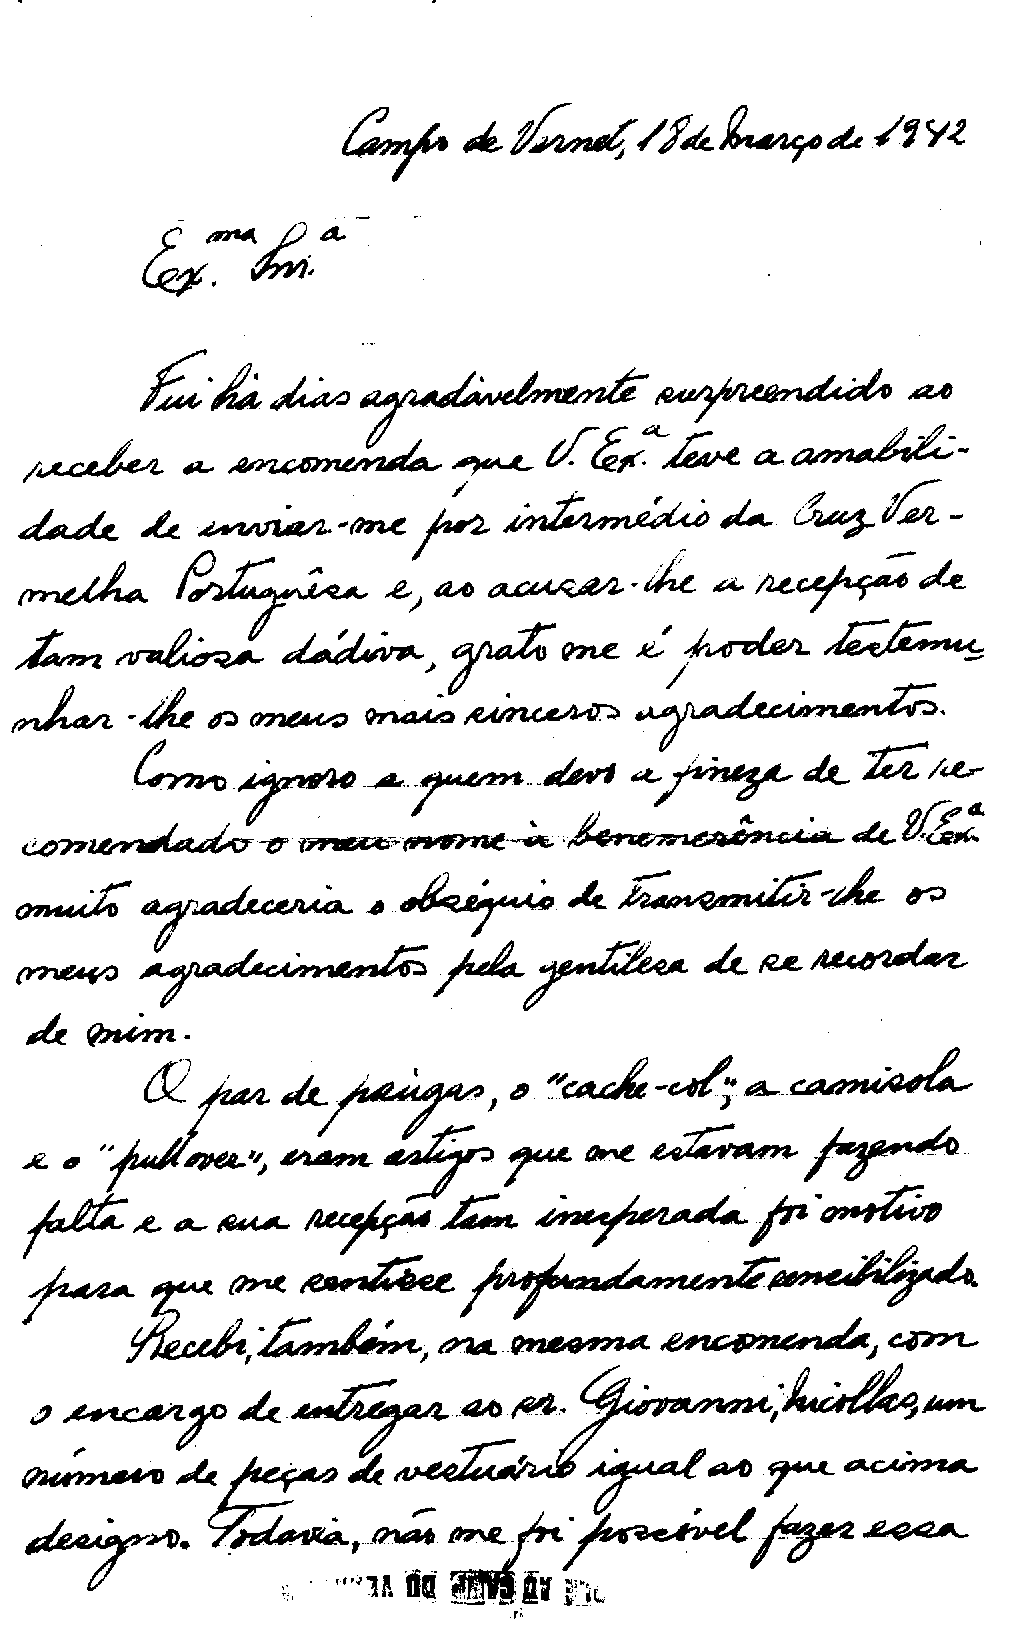 Campo de Vernet, 18 de Março de 1942
Ex.ma Snr.a
Fui há dias agradàvelmente surpreendido ao
receber a encomenda que V. Ex.a teve a amabili-
dade de enviar-me por intermédio da Cruz Ver-
melha Portuguêsa e, ao acusar-lhe a recepção de
tam valiosa dádiva, grato me é poder testemu-
nhar-lhe os meus mais sinceros agradecimentos.
Como ignoro a quem devo a fineza de ter re-
comendado o meu nome à benemerência de V. Ex.a
muito agradeceria o obséquio de transmitir-lhe os
meus agradecimentos pela gentilesa de se recordar
de mim.
O par de peúgas, o "cache-col", a camisola
e o "pullover", eram artigos que me estavam fazendo
falta e a sua recepção tam inesperada foi motivo
para que me sentisse profundamente sensibilizado.
Recebi, também, na mesma encomenda, com
o encargo de entregar ao sr. Giovanni, um
número de peças de vestuário igual ao que acima
designo. Todavia, não me foi possível fazer essa